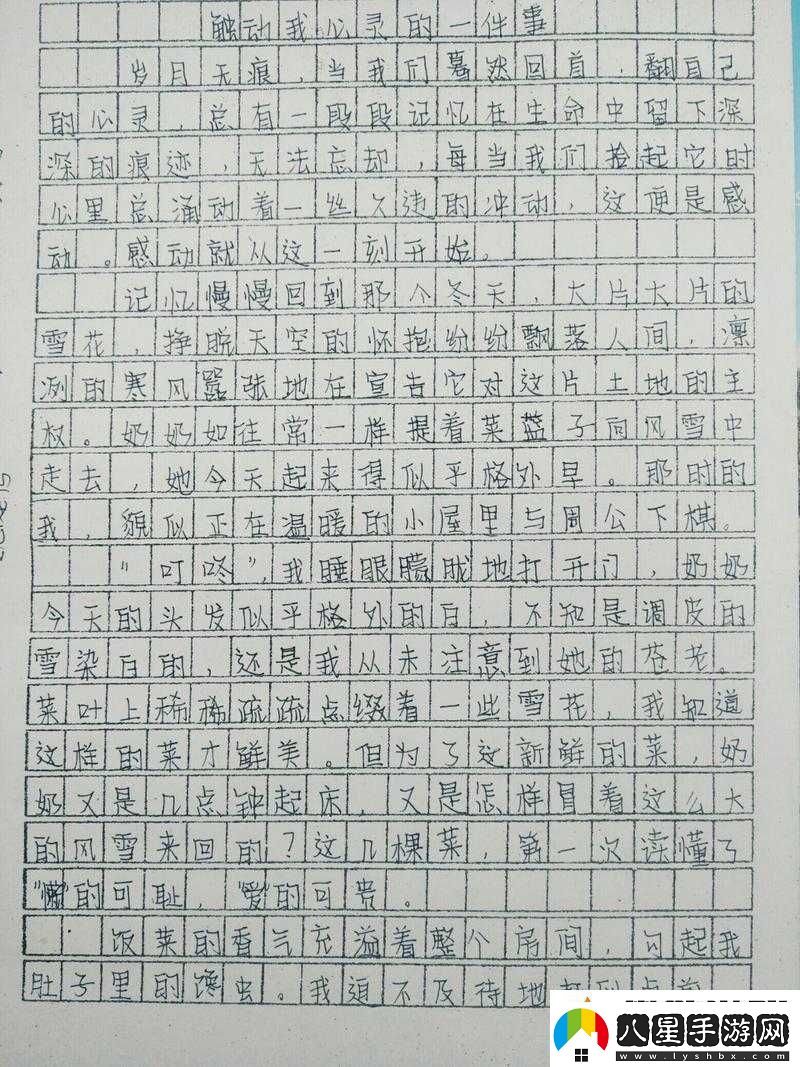 触动我心灵的一件事
岁月无痕,当我们蓦然回首,翻自己
的心灵,总有一段段记忆在生命中留下深
深的痕迹,无法忘却,每当我们捡起它时
心里总涌动着一丝久违的冲动,这便是感
动。感动就从这一刻开始。
记忆慢慢回到那个冬天,大片大片的
雪花,挣脱天空的怀抱纷纷飘落人间,凛
冽的寒风嚣张地在宣告它对这片土地的主
权。奶奶如往常一样提着菜篮子向风雪中
走去,她今天起来得似乎格外早。那时的
我,貌似正在温暖的小屋里与周公下棋。
“叮咚”,我睡眼朦胧地打开门,奶奶
今天的头发似乎格外的白,不知是调皮的
雪染白的,还是我从未注意到她的苍老。
菜叶上稀稀疏疏点缀着一些雪花,我知道
这样的菜才鲜美。但为了这新鲜的菜,奶
奶又是几点钟起床,又是怎样冒着这么大
的风雪来回的?这几棵菜,第一次读懂了
“懒”的可耻,“爱”的可贵。
饭菜的香气充溢着整个房间,勾起我
肚子里的馋虫。我迫不及待地
八星手游网
www.lyshbx.com